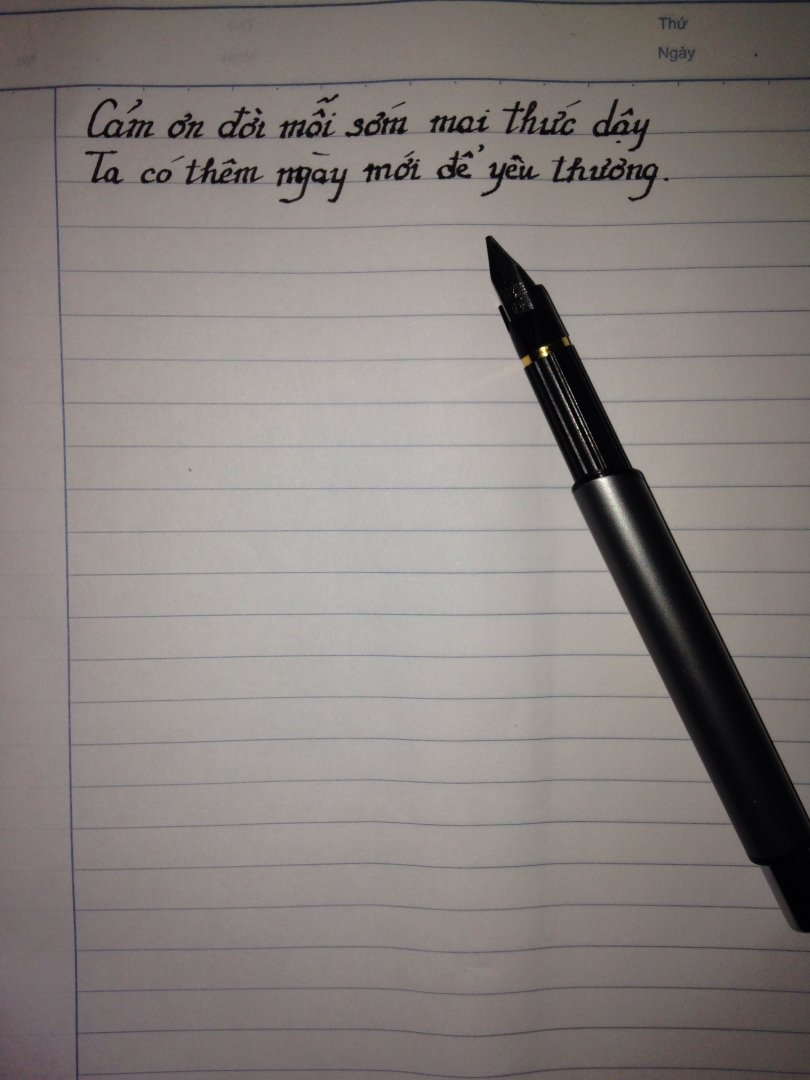 Thứ
Ngày
Cảm ơn đời mỗi sớm mai thức dậy
Ta có thêm ngày mới để yêu thương.